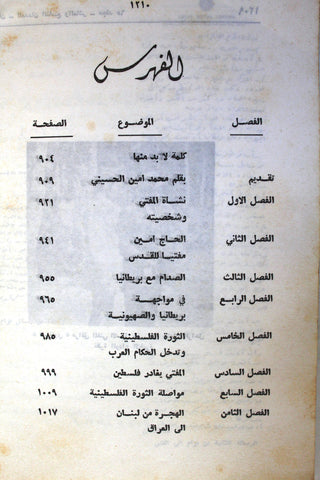 ١٢١٠
الفهرس
الفصل الموضوع الصفحة
كلمة لا بد منها ٩٠٤
تقديم بقلم محمد امين الحسيني ٩٠٩
الفصل الاول نشاة المفتي ٩٢١
وشخصيته
الفصل الثاني الحاج امين ٩٤١
مفتيا للقدس
الفصل الثالث الصدام مع بريطانيا ٩٥٥
الفصل الرابع في مواجهة ٩٦٥
بريطانيا والصهيونية
الفصل الخامس الثورة الفلسطينية ٩٨٥
وتدخل الحكام العرب
الفصل السادس المفتي يغادر فلسطين ٩٩٩
الفصل السابع مواصلة الثورة الفلسطينية ١٠٠٩
الفصل الثامن الهجرة من لبنان ١٠١٧
الى العراق